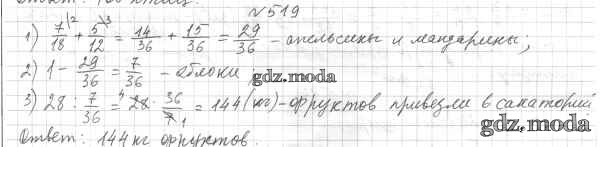 №519
1) 7/18 \2 + 5/12 \3 = 14/36 + 15/36 = 29/36 - апельсины и мандарины;
2) 1 - 29/36 = 7/36 - яблоки;
gdz.moda
3) 28 : 7/36 = 4 28 · 36/7 1 = 144 (кг) - фруктов привезли в санаторий
gdz.moda
Ответ: 144 кг фруктов.